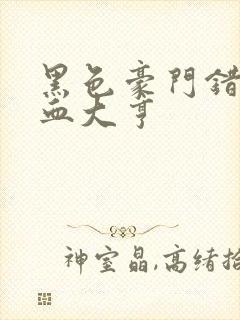 黑色豪門錯
血大亨
神室晶,高緒拾